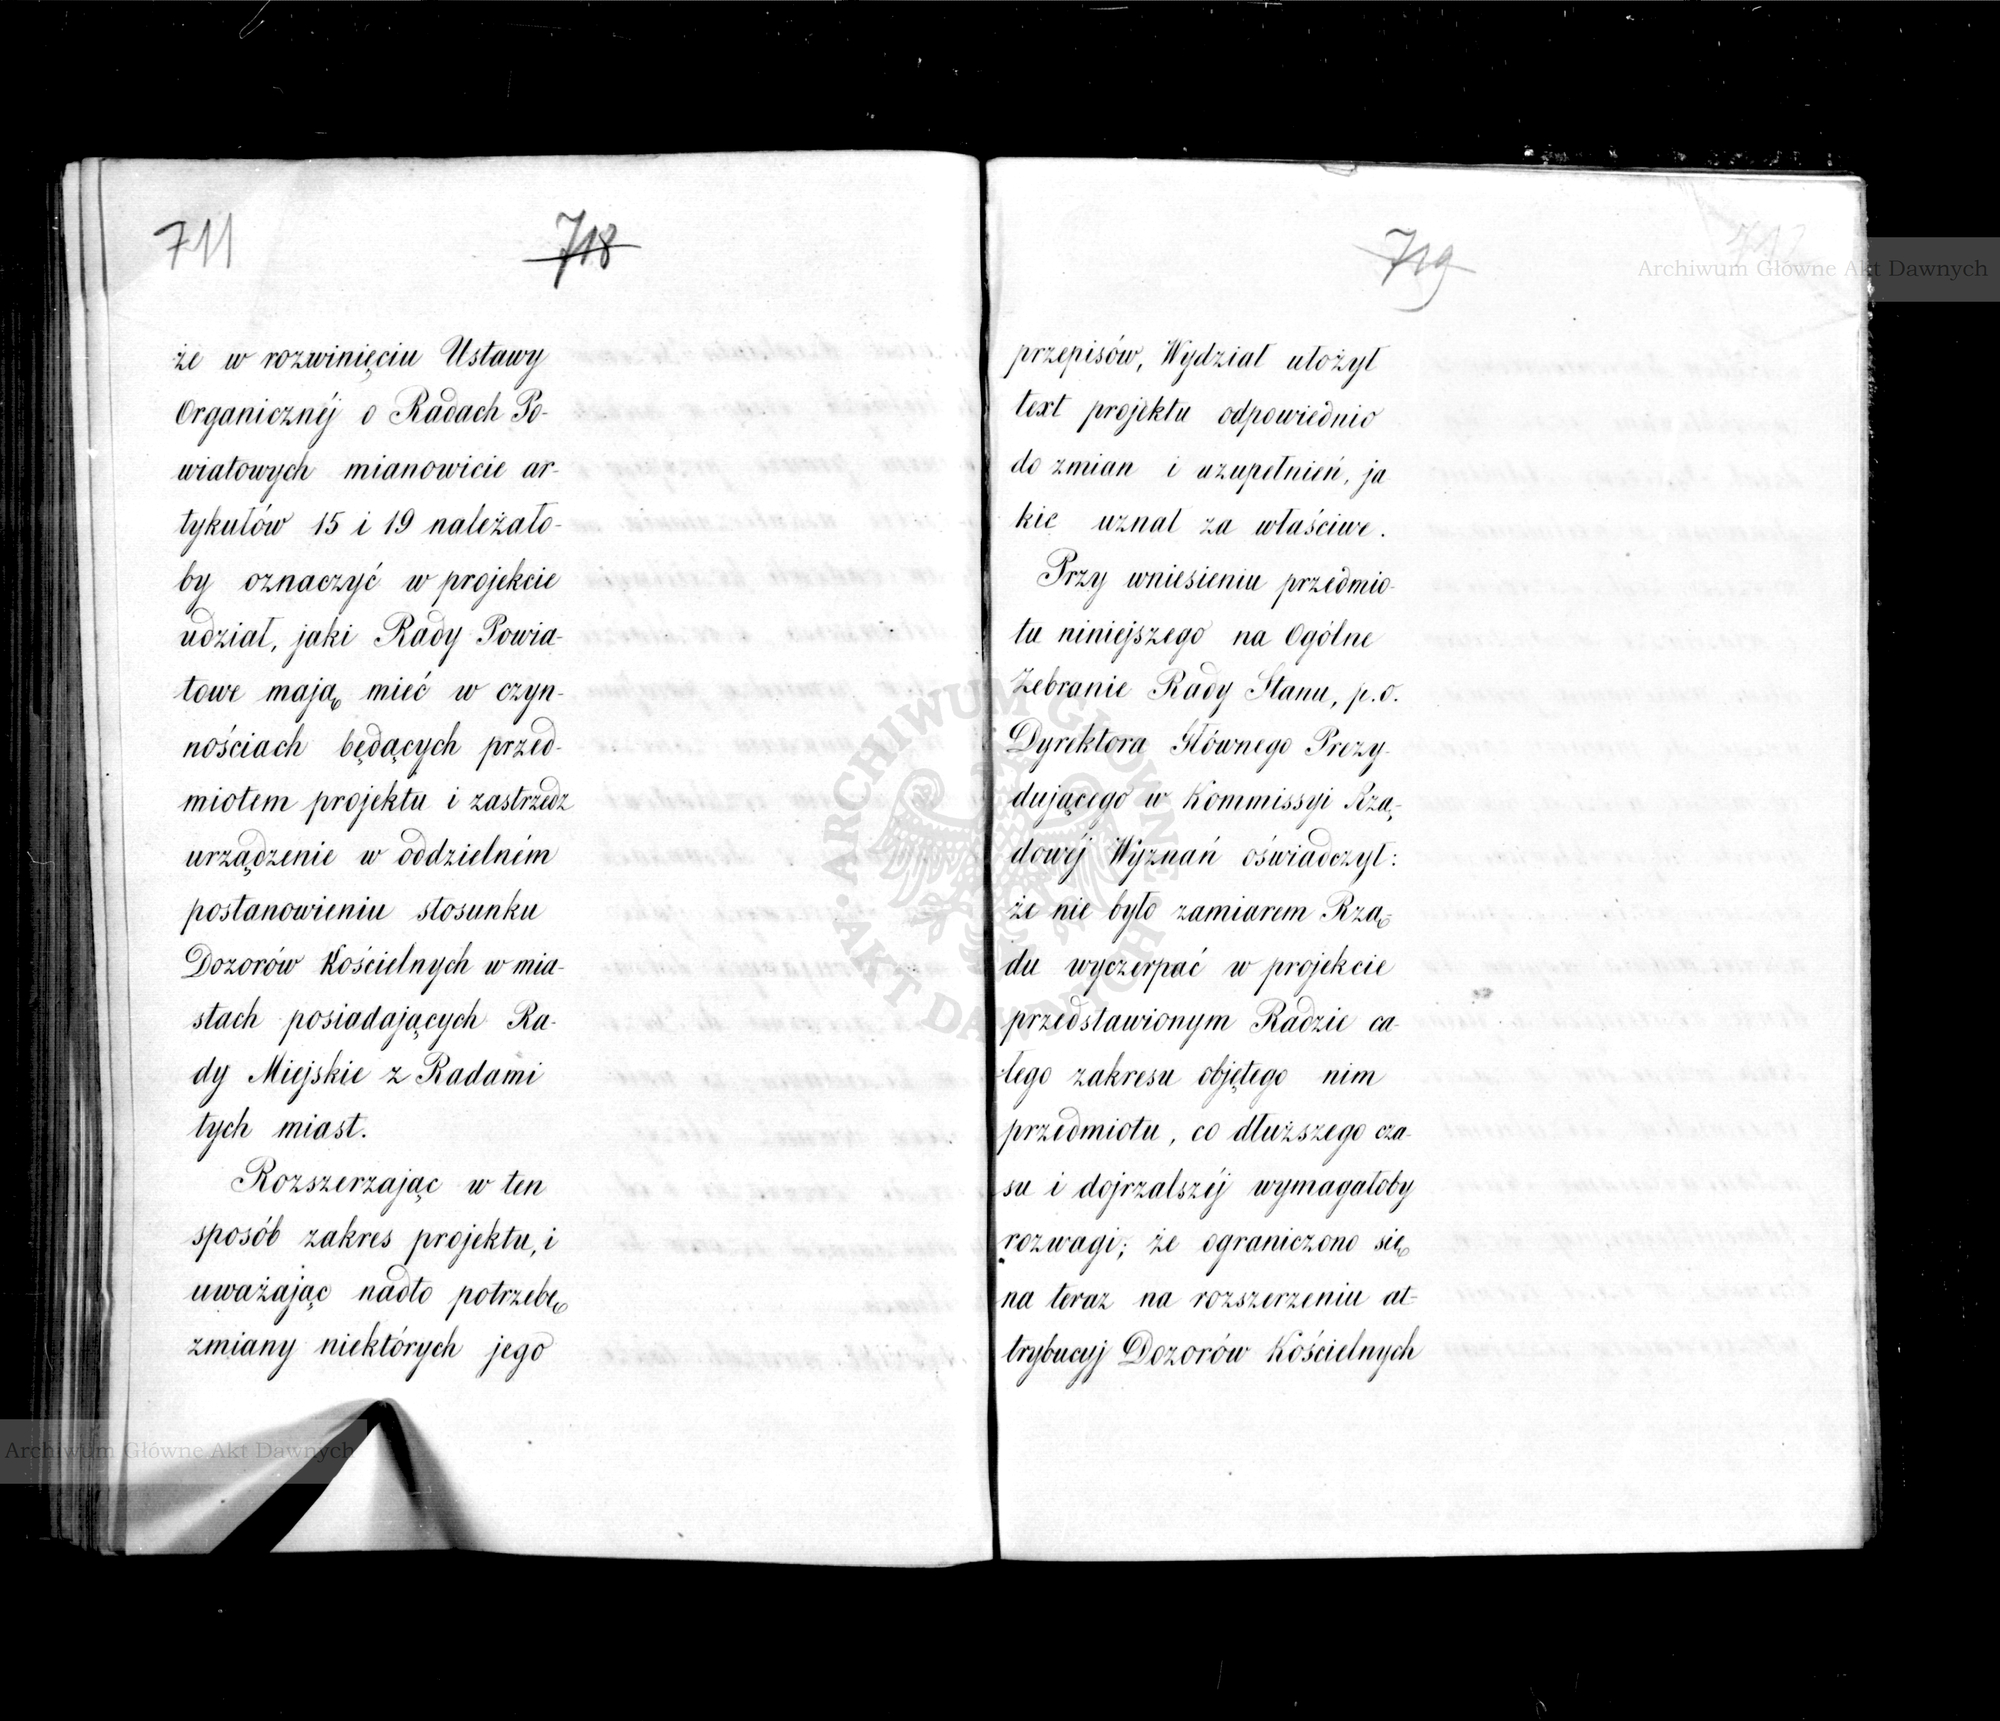 711
718
że w rozwinięciu Ustawy
Organicznéj o Radach Po-
wiatowych mianowicie ar-
tykułów 15 i 19 należało-
by oznaczyć w projekcie
udział, jaki Rady Powia-
towe mają mieć w czyn-
nościach będących przed-
miotem projektu i zastrzedz
urządzenie w oddzielném
postanowieniu stosunku
Dozorów Kościelnych w mia-
stach posiadających Ra-
dy Miejskie z Radami
tych miast.
Rozszerzając w ten
sposób zakres projektu, i
uważając nadto potrzebę
zmiany niektórych jego
719
712
przepisów, Wydział ułożył
text projektu odpowiednio
do zmian i uzupełnień, ja
kie uznał za właściwe.
Przy wniesieniu przedmio-
tu niniejszego na Ogólne
Zebranie Rady Stanu, p.o.
Dyrektora Głównego Prezy-
dującego w Kommissyi Rzą-
dowéj Wyznań oświadczył:
że nie było zamiarem Rzą-
du wyczerpać w projekcie
przedstawionym Radzie ca-
łego zakresu objętego nim
przedmiotu, co dłuższego cza-
su i dojrzalszéj wymagałoby
rozwagi; że ograniczono się
na teraz na rozszerzeniu at-
trybucyj Dozorów Kościelnych
Archiwum Główne Akt Dawnych
ARCHIWUM GŁÓWNE AKT DAWNYCH
Archiwum Główne Akt Dawnych